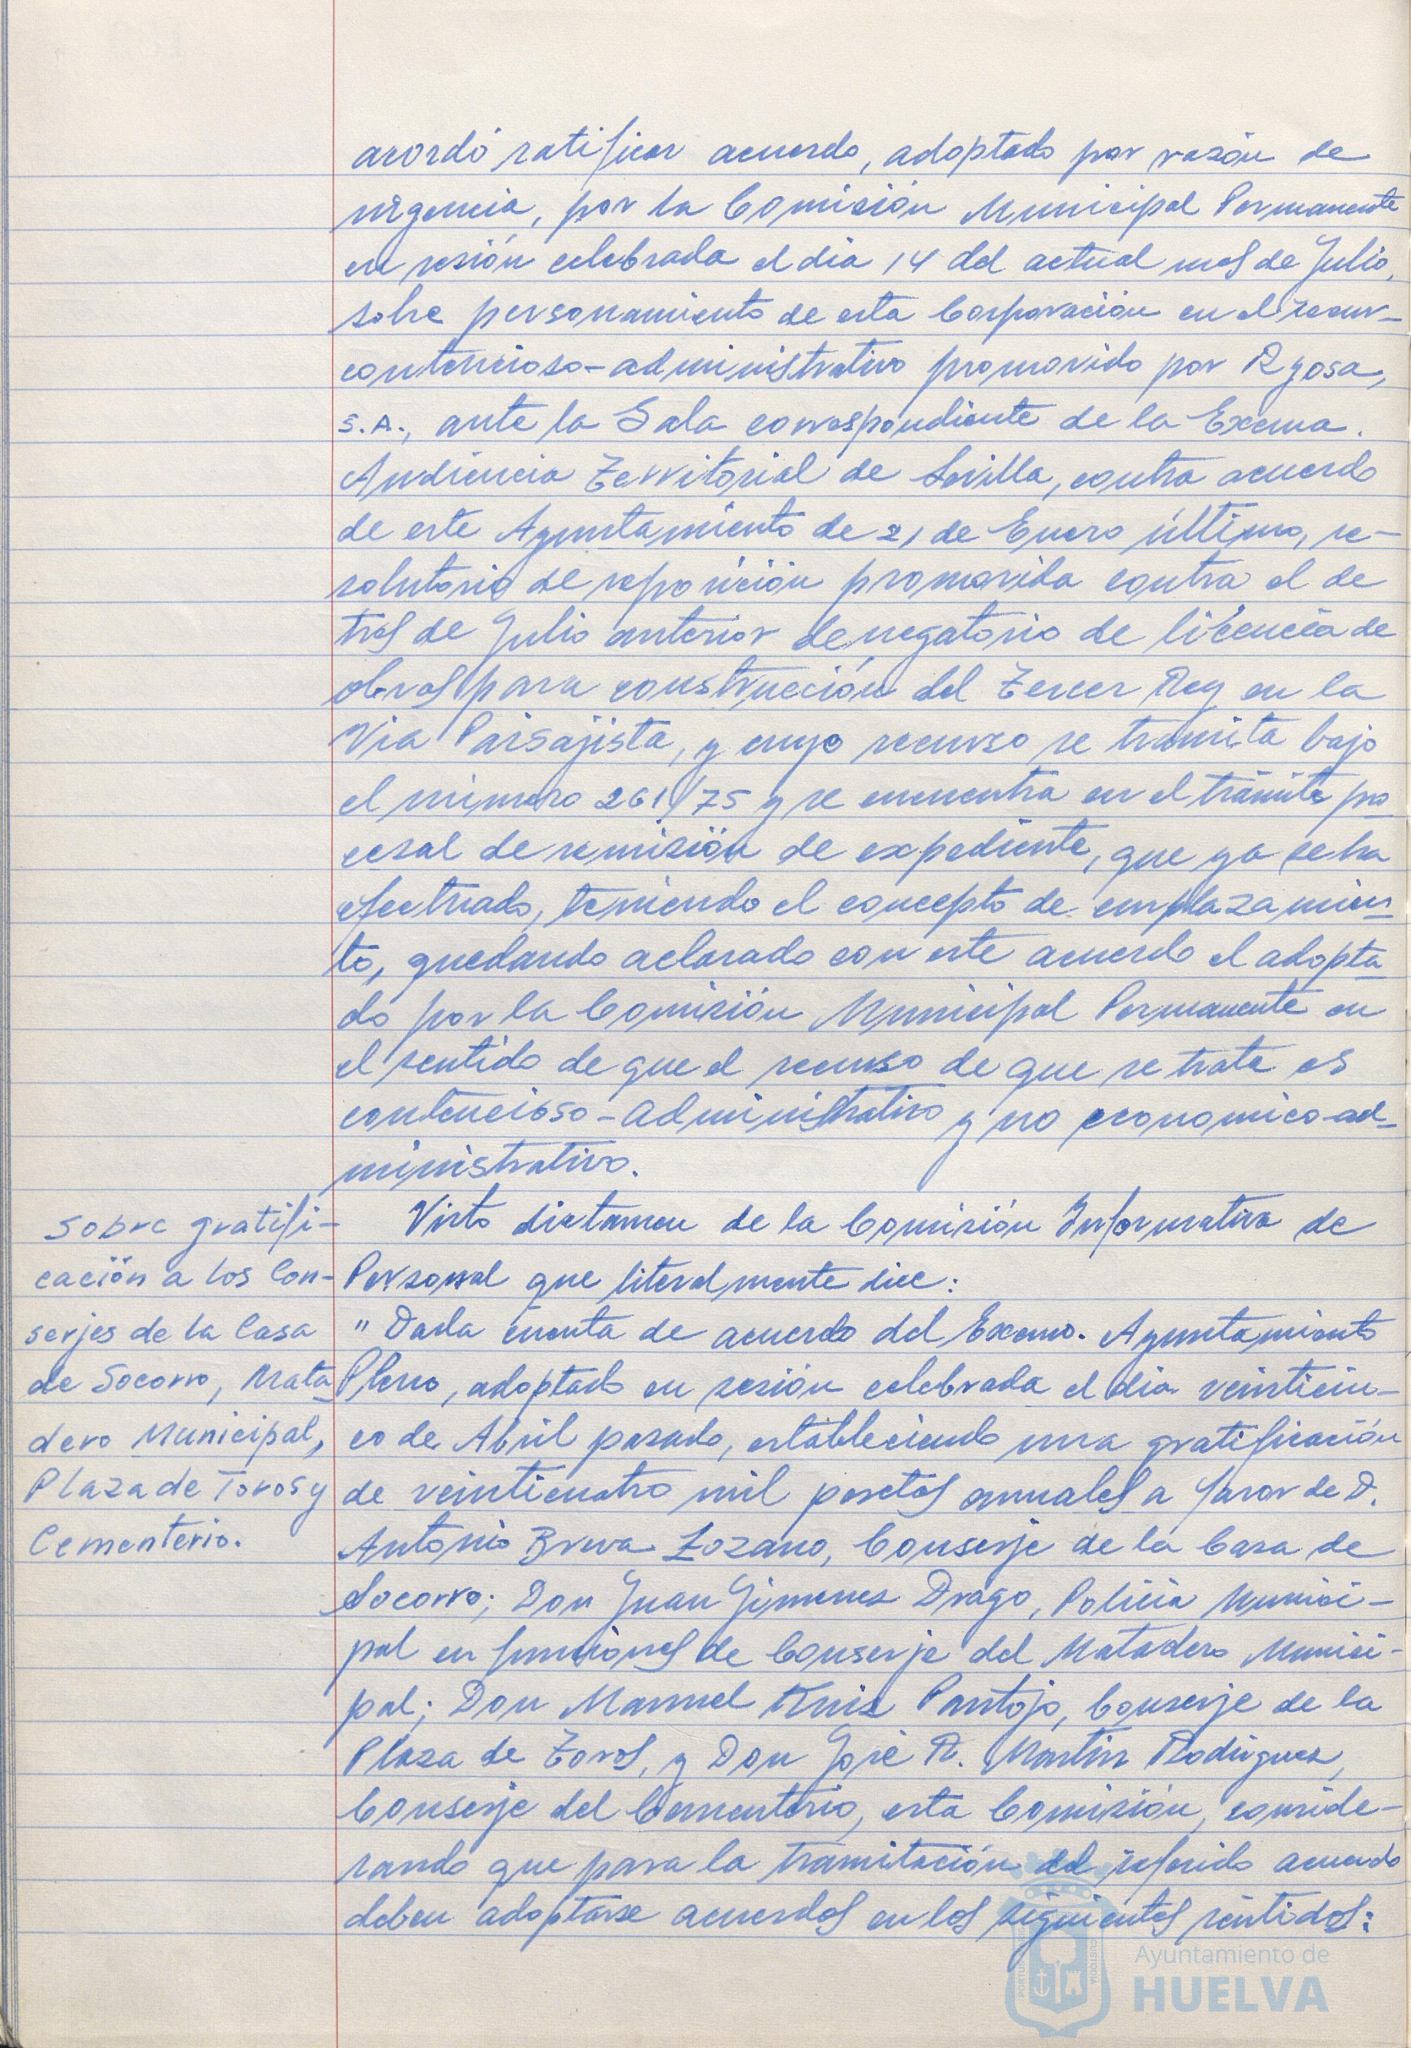 acordó ratificar acuerdo, adoptado por razón de
urgencia, por la Comisión Municipal Permanente
en sesión celebrada el día 14 del actual mes de Julio,
sobre personamiento de esta Corporación en el recur-
contencioso-administrativo promovido por Rygosa,
S.A., ante la Sala correspondiente de la Excma.
Audiencia Territorial de Sevilla, contra acuerdo
de este Ayuntamiento de 21 de Enero último, re-
solutorio de reposición promovida contra el de
tres de Julio anterior denegatorio de licencia de
obras para construcción del Tercer Rey en la
Via Paisajista, y cuyo recurso se tramita bajo
el número 261/75 y se encuentra en el trámite pro
cesal de remisión de expediente, que ya se ha
efectuado, teniendo el concepto de emplazamien-
to, quedando aclarado con este acuerdo el adopta-
do por la Comisión Municipal Permanente en
el sentido de que el recurso de que se trata es
contencioso-administrativo y no economico-ad-
ministrativo.
Sobre gratifi-
cación a los Con-
serjes de la Casa
de Socorro, Mata-
dero Municipal,
Plaza de Toros y
Cementerio.
Visto dictamen de la Comisión Informativa de
Personal que literalmente dice:
"Dada cuenta de acuerdo del Excmo. Ayuntamiento
Pleno, adoptado en sesión celebrada el día veinticin-
co de Abril pasado, estableciendo una gratificación
de veinticuatro mil pesetas anuales a favor de D.
Antonio Breva Lozano, Conserje de la Casa de
Socorro; Don Juan Gimenez Drago, Policia Munici-
pal en funciones de Conserje del Matadero Munici-
pal; Don Manuel Ruiz Pantoja, Conserje de la
Plaza de Toros, y Don José A. Martín Rodríguez,
Conserje del Cementerio, esta Comisión, conside-
rando que para la tramitación del referido acuerdo
deben adoptarse acuerdos en los siguientes sentidos:
Ayuntamiento de
HUELVA